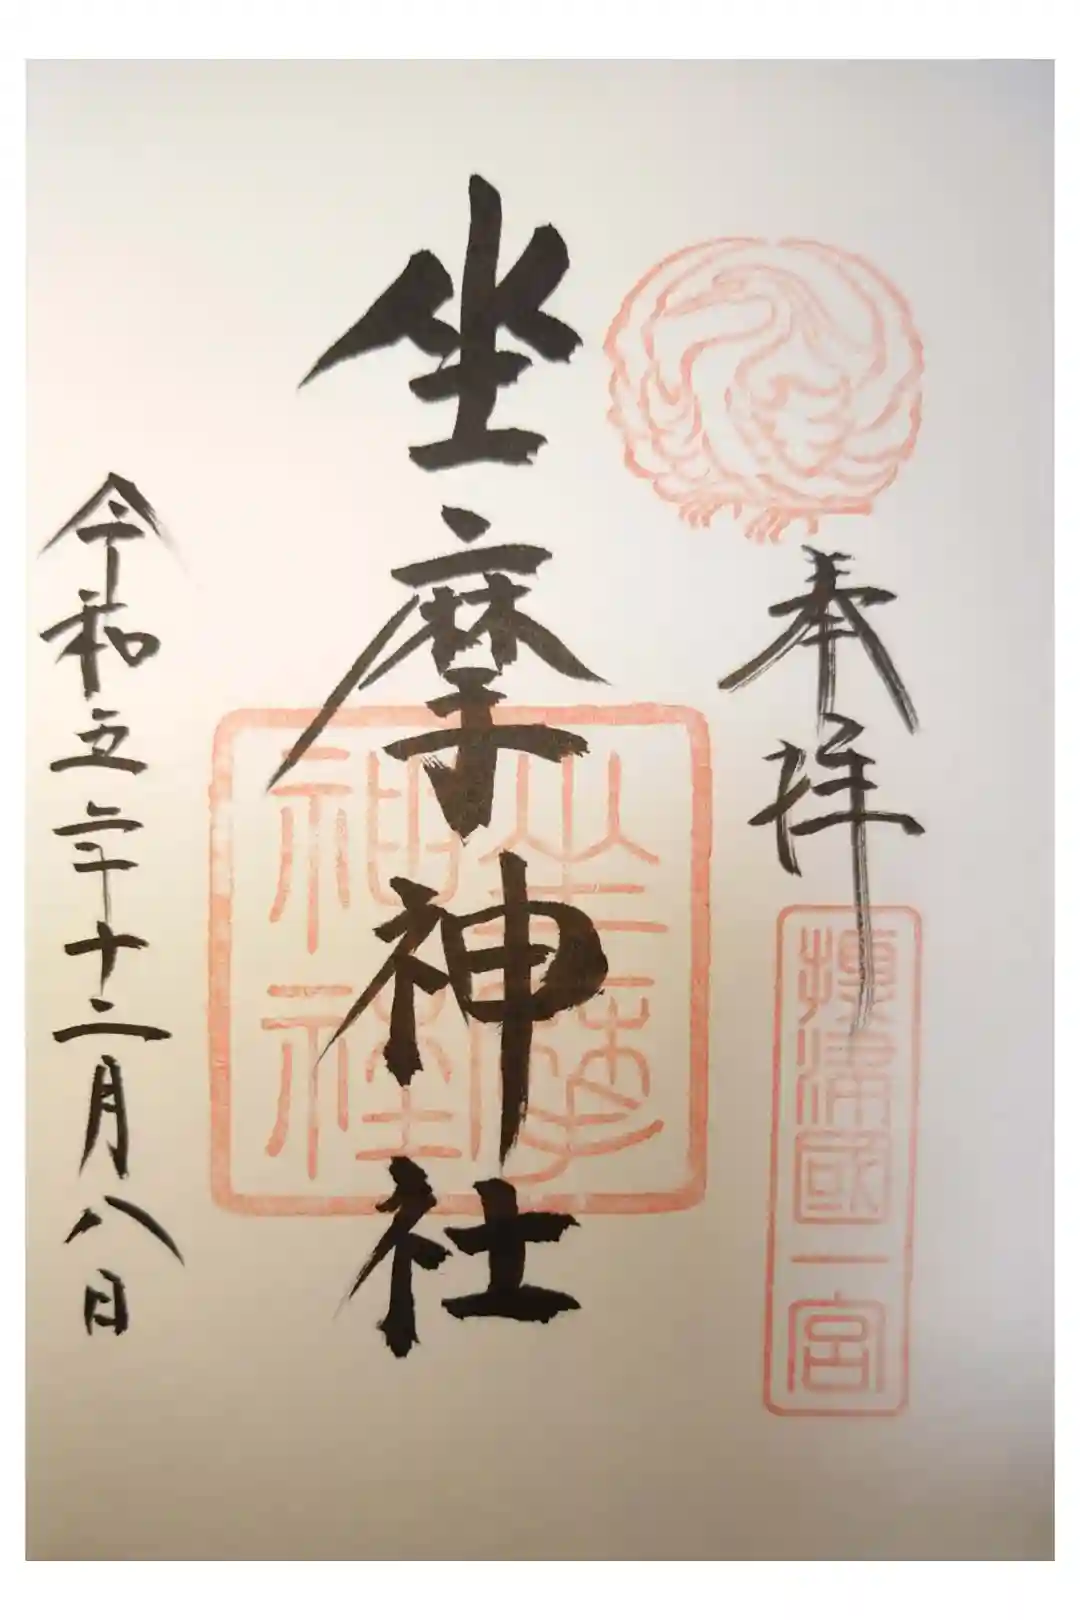 奉拝
攝津國一宮
坐摩神社
坐摩神社
令和五年十二月八日